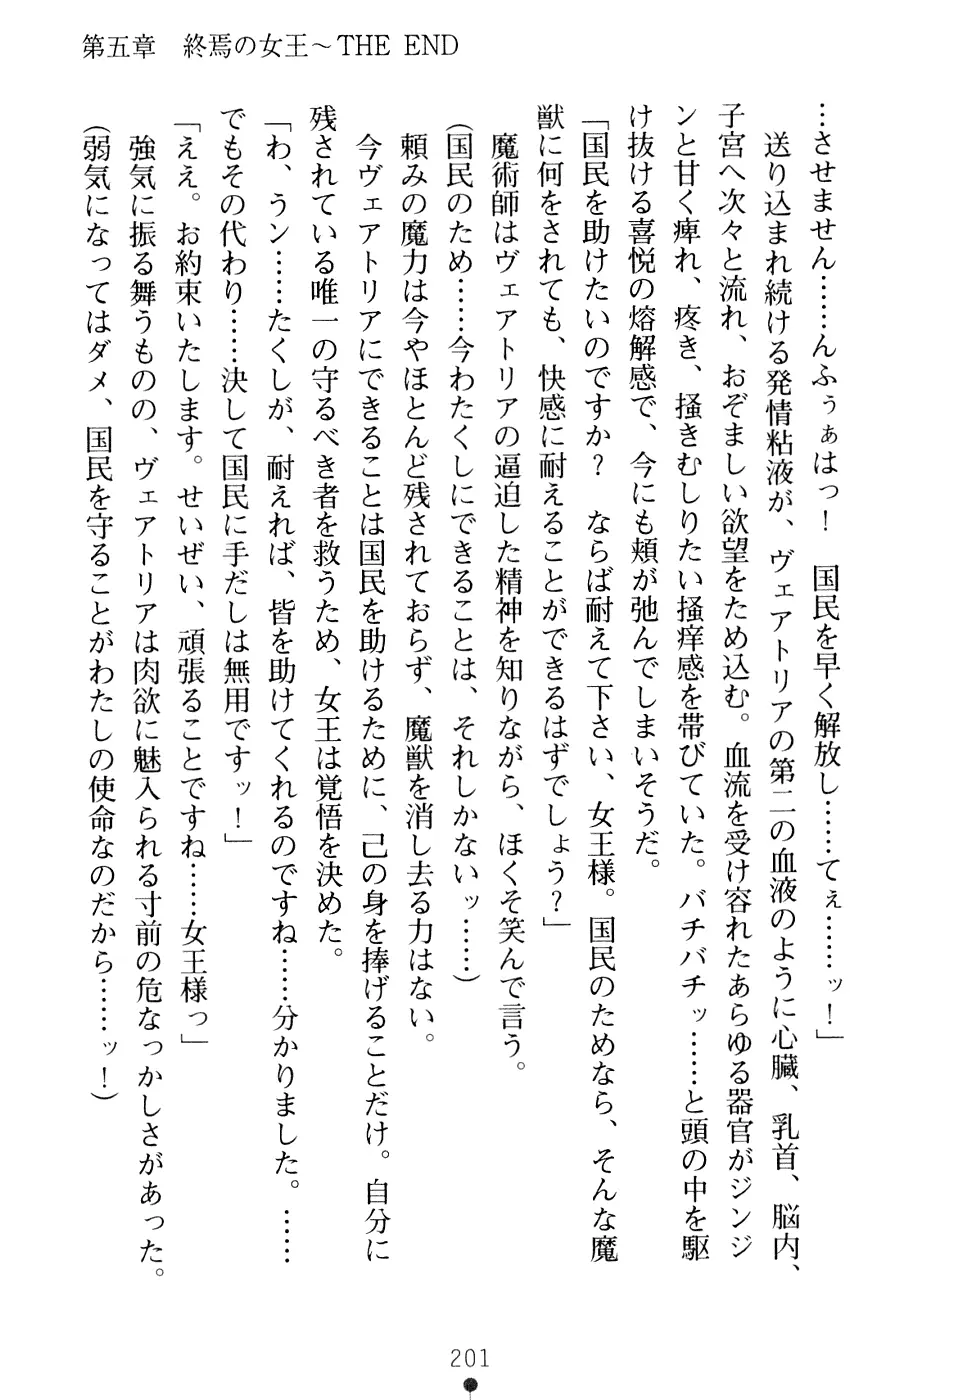 第五章　終焉の女王～THE END
…させません……んふぅぁはっ！　国民を早く解放し……てぇ……ッ！」
　送り込まれ続ける発情粘液が、ヴェアトリアの第二の血液のように心臓、乳首、脳内、
子宮へ次々と流れ、おぞましい欲望をため込む。血流を受け容れたあらゆる器官がジンジ
ンと甘く痺れ、疼き、掻きむしりたい掻痒感を帯びていた。バチバチッ……と頭の中を駆
け抜ける喜悦の熔解感で、今にも頬が弛んでしまいそうだ。
「国民を助けたいのですか？　ならば耐えて下さい、女王様。国民のためなら、そんな魔
獣に何をされても、快感に耐えることができるはずでしょう？」
　魔術師はヴェアトリアの逼迫した精神を知りながら、ほくそ笑んで言う。
（国民のため……今わたくしにできることは、それしかないッ……）
　頼みの魔力は今やほとんど残されておらず、魔獣を消し去る力はない。
　今ヴェアトリアにできることは国民を助けるために、己の身を捧げることだけ。自分に
残されている唯一の守るべき者を救うため、女王は覚悟を決めた。
「わ、うン……たくしが、耐えれば、皆を助けてくれるのですね……分かりました。……
でもその代わり……決して国民に手だしは無用ですッ！」
「ええ。お約束いたします。せいぜい、頑張ることですね……女王様っ」
　強気に振る舞うものの、ヴェアトリアは肉欲に魅入られる寸前の危なっかしさがあった。
（弱気になってはダメ、国民を守ることがわたしの使命なのだから……ッ！）
201